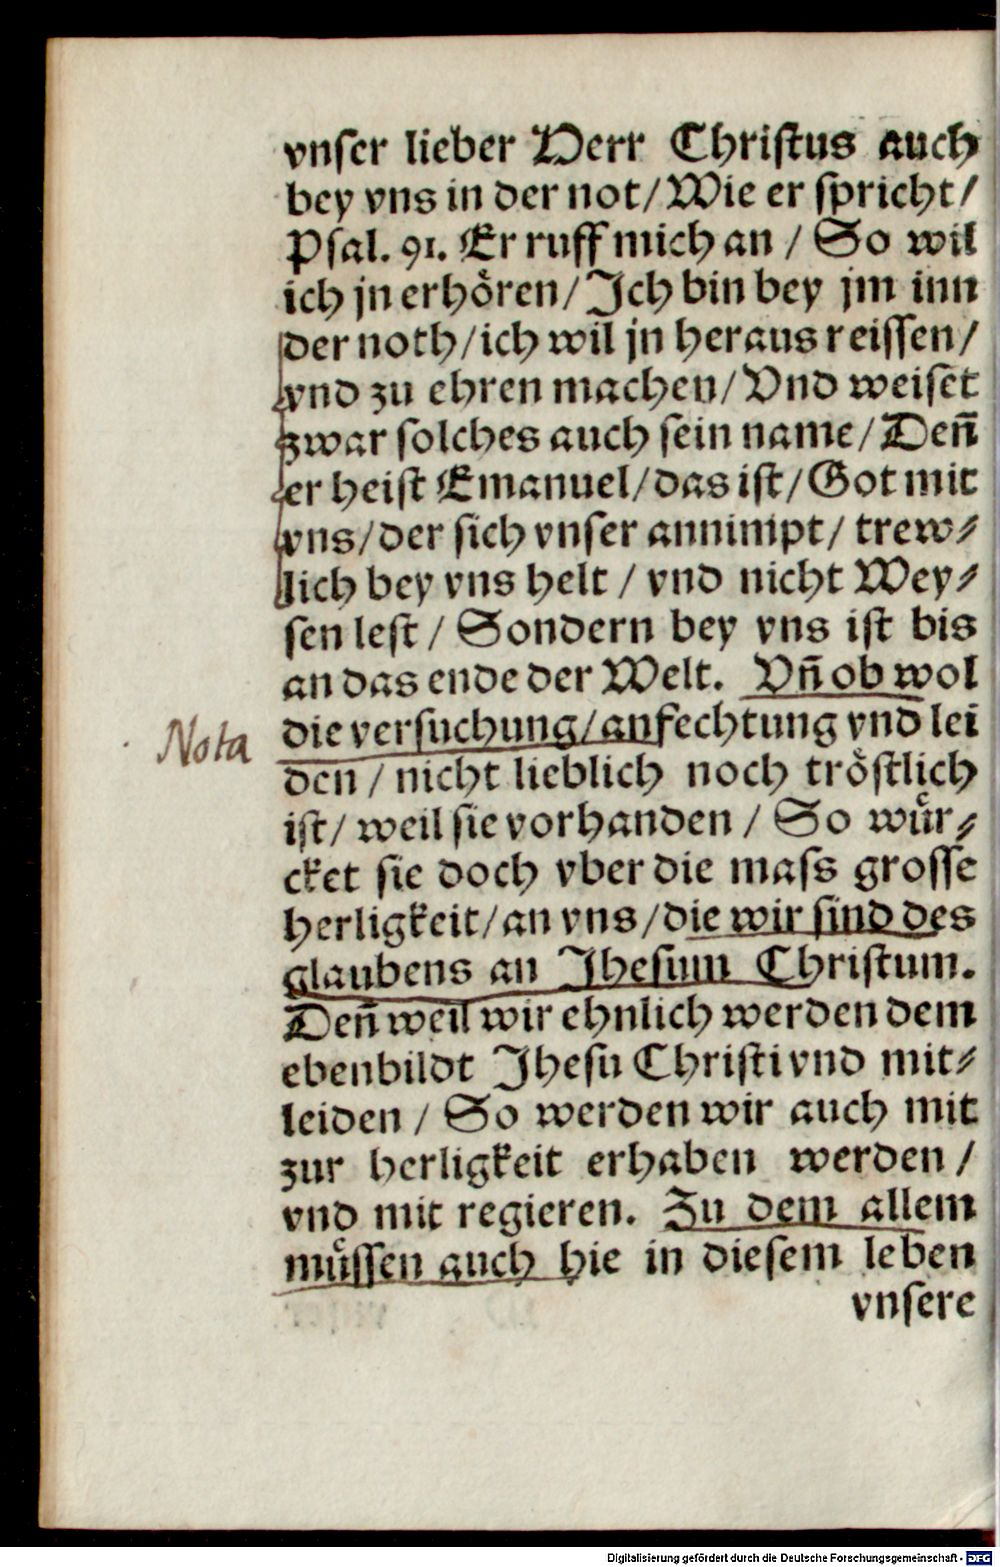 vnſer lieber Herr Chriſtus auch
bey vns in der not/ Wie er ſpricht/
Pſal. 91. Er ruff mich an / So wil
ich jn erhören/ Ich bin bey jm inn
der noth/ich wil jn heraus reiſſen/
vnd zu ehren machen/ Vnd weiſet
zwar ſolches auch ſein name/ Deñ
er heiſt Emanuel/das iſt/ Got mit
vns/der ſich vnſer annimpt/ trew⸗
lich bey vns helt / vnd nicht Wey⸗
ſen leſt / Sondern bey vns iſt bis
an das ende der Welt. Vñ ob wol
Nota die verſuchung/anfechtung vnd lei
den / nicht lieblich noch tröſtlich
iſt/ weil ſie vorhanden / So wür⸗
cket ſie doch vber die maſs groſſe
herligkeit/an vns/die wir ſind des
glaubens an Jheſum Chriſtum.
Deñ weil wir ehnlich werden dem
ebenbildt Jheſu Chriſti vnd mit⸗
leiden / So werden wir auch mit
zur herligkeit erhaben werden /
vnd mit regieren. Zu dem allem
müſſen auch hie in dieſem leben
vnſere
Digitalisierung gefördert durch die Deutsche Forschungsgemeinschaft - DFG